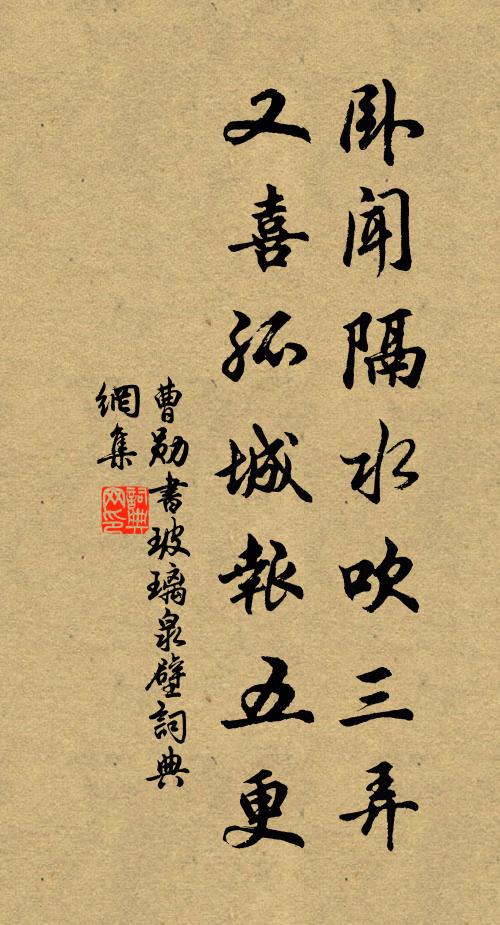 卧聞隔水吹三弄
又喜孤城報五更
曹勛書玻璃泉壁詞典
網集
詞典
网印